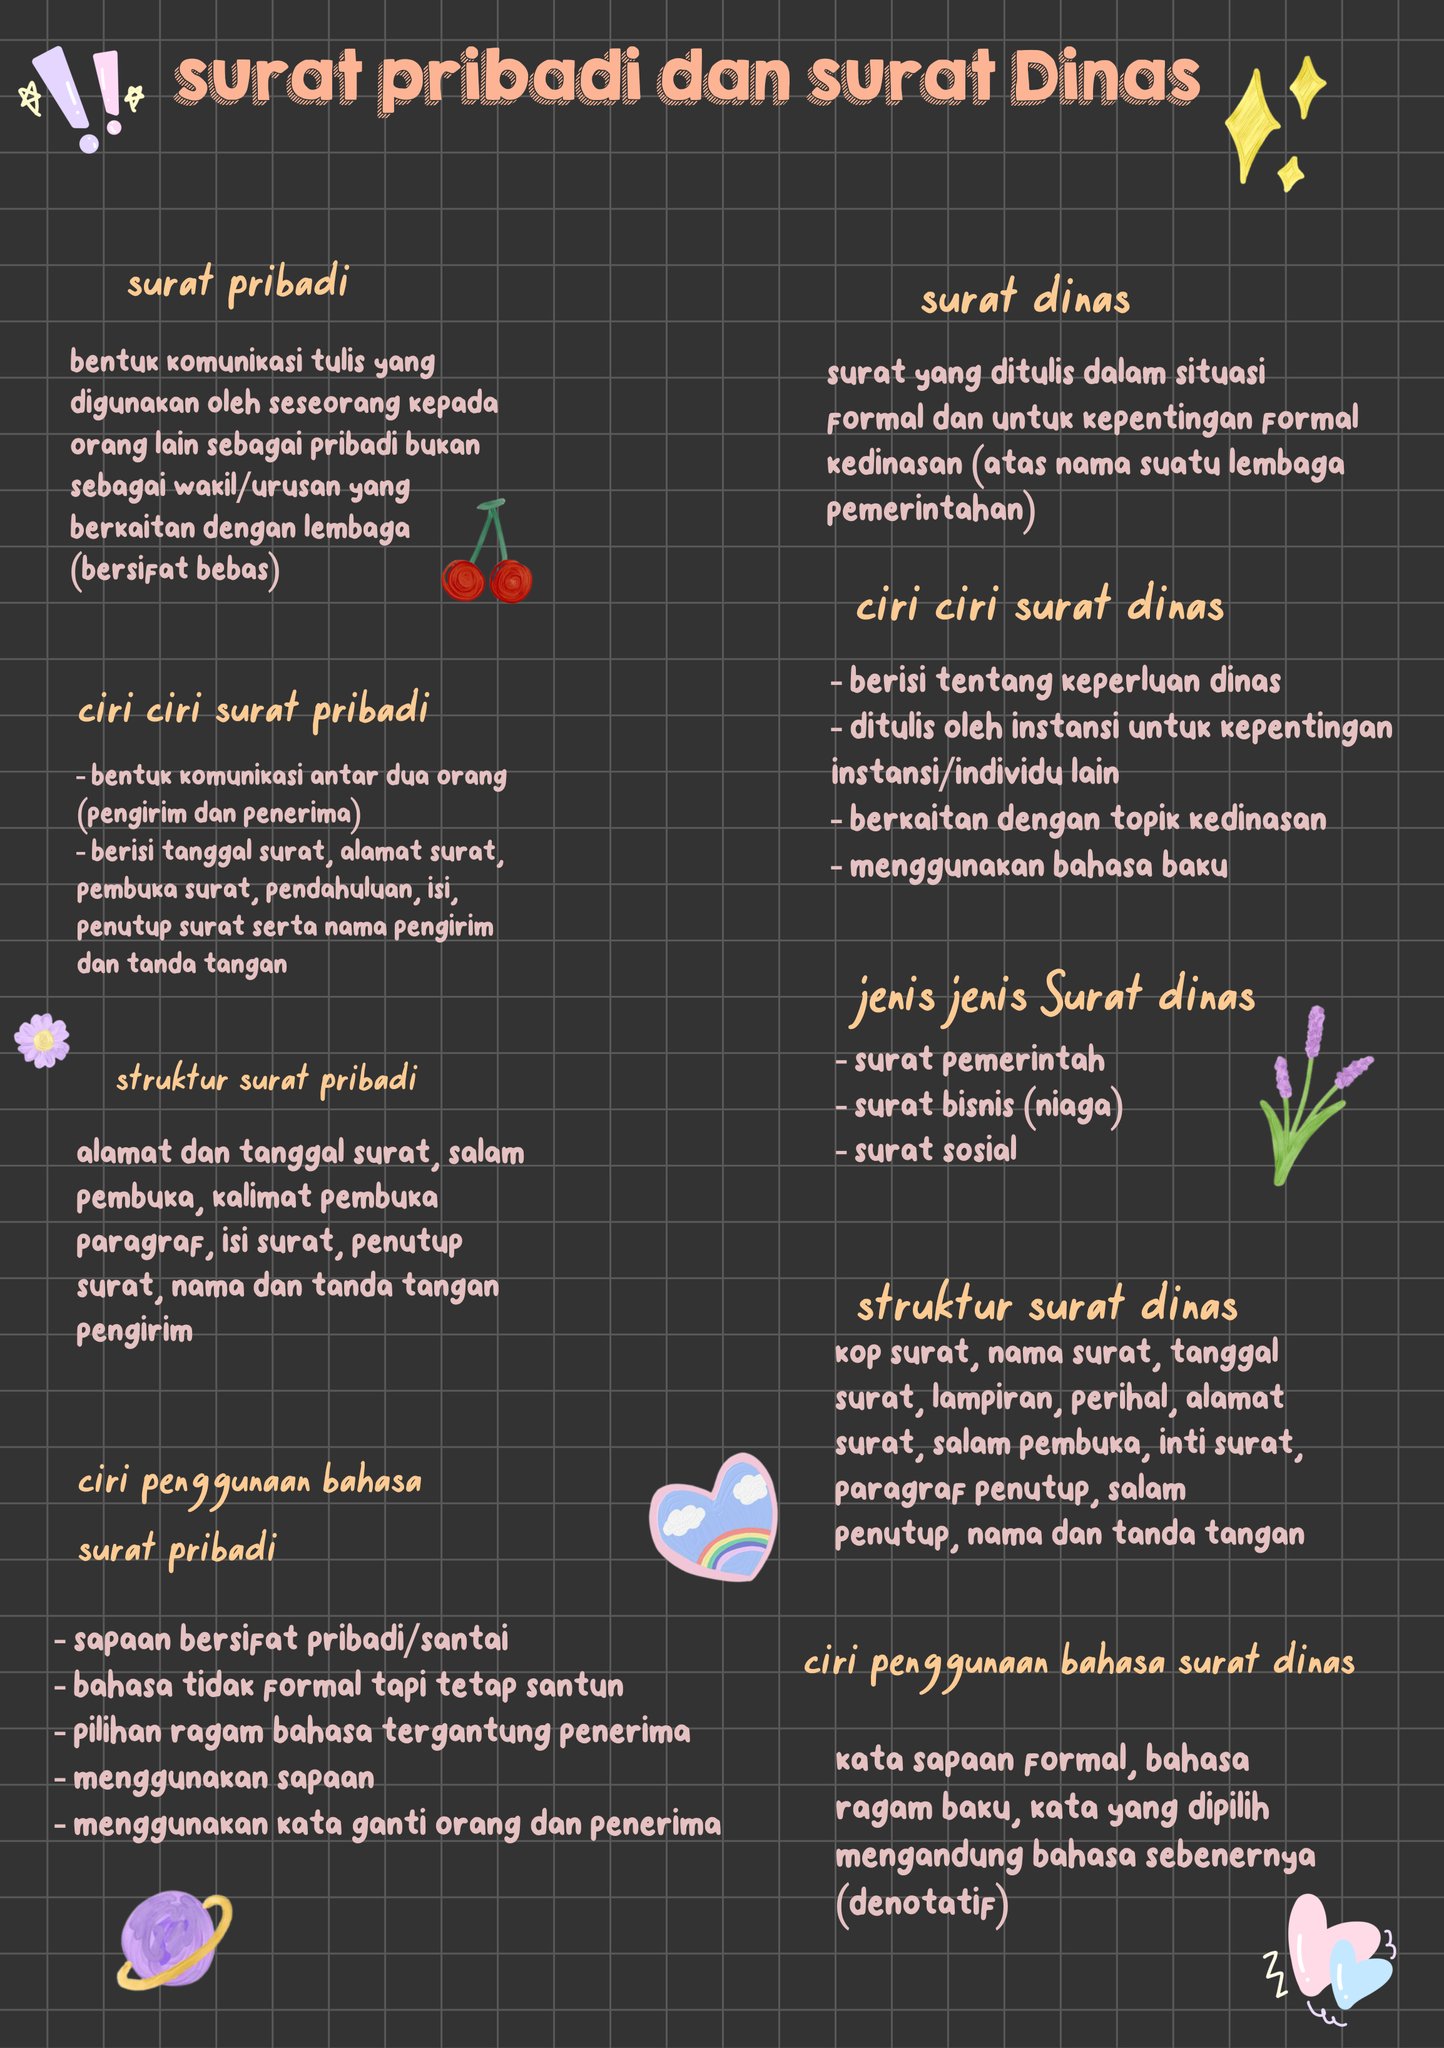 surat pribadi dan surat Dinas
surat pribadi
bentuk komunikasi tulis yang
digunakan oleh seseorang kepada
orang lain sebagai pribadi bukan
sebagai wakil/urusan yang
berkaitan dengan lembaga
(bersifat bebas)
ciri ciri surat pribadi
- bentuk komunikasi antar dua orang
(pengirim dan penerima)
- berisi tanggal surat, alamat surat,
pembuka surat, pendahuluan, isi,
penutup surat serta nama pengirim
dan tanda tangan
struktur surat pribadi
alamat dan tanggal surat, salam
pembuka, kalimat pembuka
paragraf, isi surat, penutup
surat, nama dan tanda tangan
pengirim
ciri penggunaan bahasa
surat pribadi
- sapaan bersifat pribadi/santai
- bahasa tidak formal tapi tetap santun
- pilihan ragam bahasa tergantung penerima
- menggunakan sapaan
- menggunakan kata ganti orang dan penerima
surat dinas
surat yang ditulis dalam situasi
formal dan untuk kepentingan formal
kedinasan (atas nama suatu lembaga
pemerintahan)
ciri ciri surat dinas
- berisi tentang keperluan dinas
- ditulis oleh instansi untuk kepentingan
instansi/individu lain
- berkaitan dengan topik kedinasan
- menggunakan bahasa baku
jenis jenis Surat dinas
- surat pemerintah
- surat bisnis (niaga)
- surat sosial
struktur surat dinas
kop surat, nama surat, tanggal
surat, lampiran, perihal, alamat
surat, salam pembuka, inti surat,
paragraf penutup, salam
penutup, nama dan tanda tangan
ciri penggunaan bahasa surat dinas
kata sapaan formal, bahasa
ragam baku, kata yang dipilih
mengandung bahasa sebenernya
(denotatif)